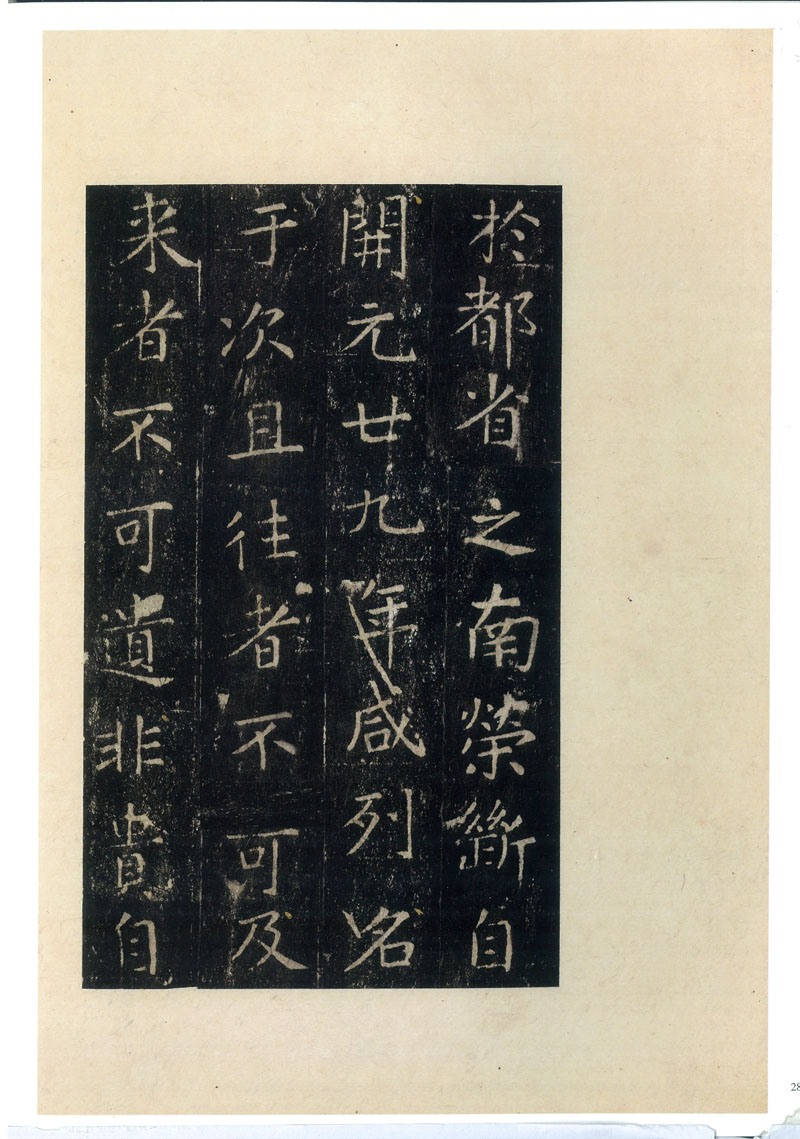 於都省之南榮斷自
開元廿九年咸列名
于次且往者不可及
来者不可遺非貴自
28